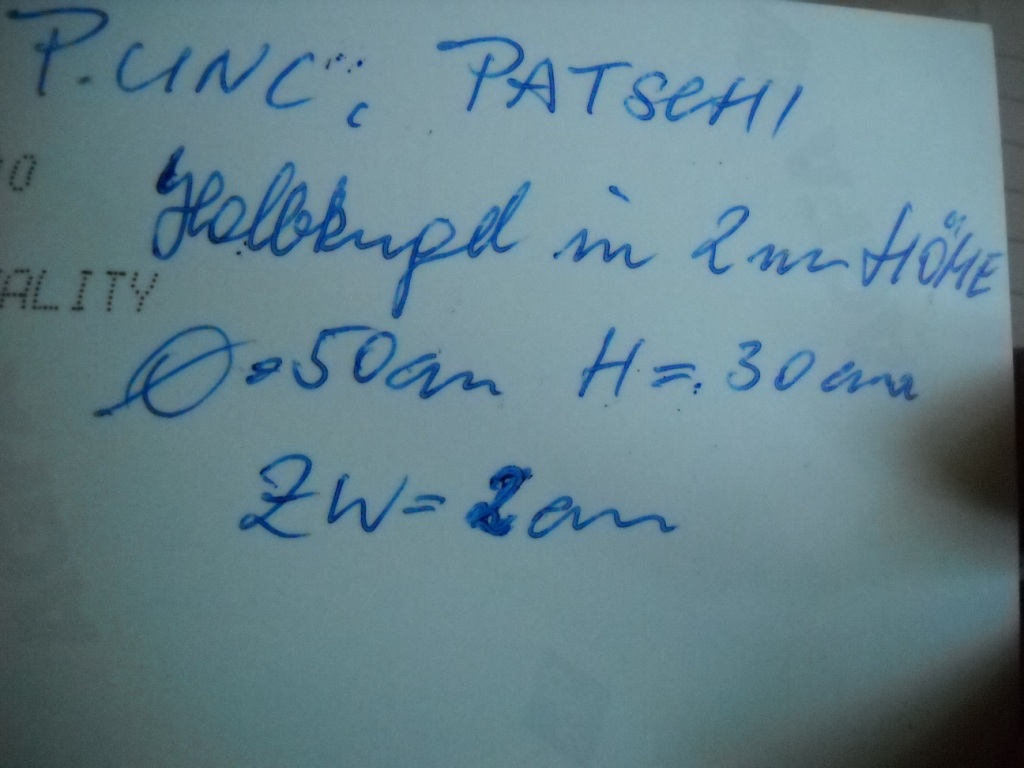 P. UNC; PATSCHI
Halbkugel in 2 m HÖHE
Ø = 50 cm H = 30 cm
ZW = 2 cm
0
ALITY